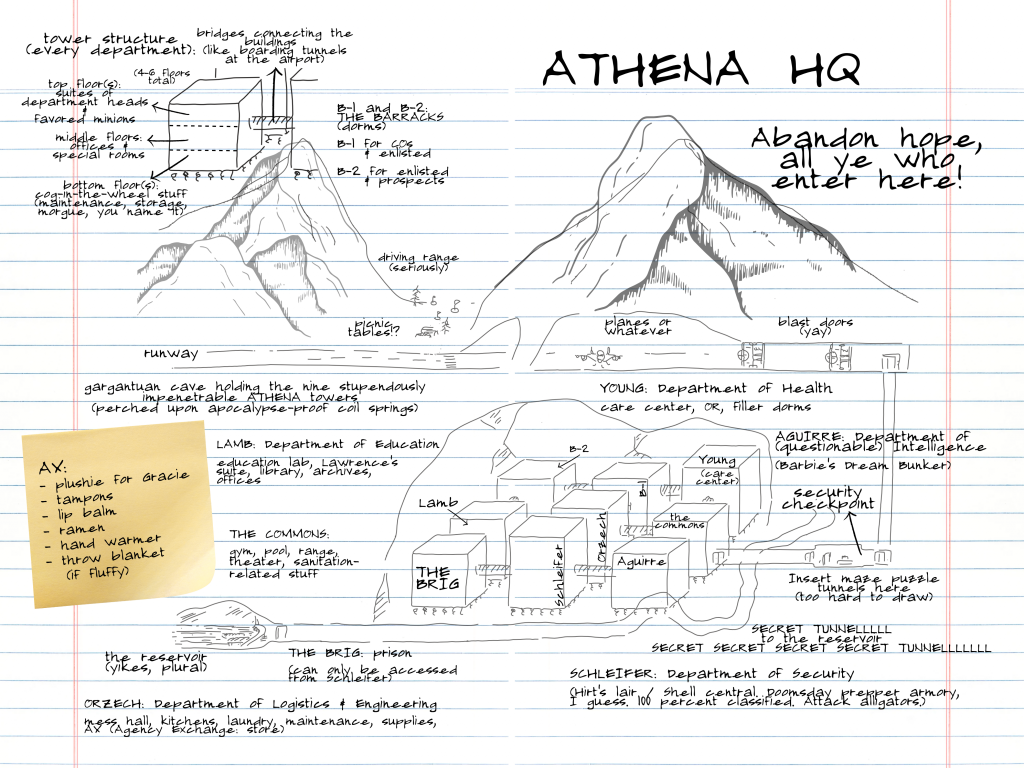 tower structure
(every department):
bridges connecting the
buildings
(like boarding tunnels
at the airport)
ATHENA HQ
(4-6 floors
total)
top floor(s):
suites of
department heads
&
favored minions
middle floors:
offices &
special rooms
bottom floor(s):
cog-in-the-wheel stuff
(maintenance, storage,
morgue, you name it)
B-1 and B-2:
THE BARRACKS
(dorms)
B-1 for COs
& enlisted
B-2 for enlisted
& prospects
Abandon hope,
all ye who
enter here!
driving range
(seriously)
picnic
tables!?
runway
planes or
whatever
blast doors
(yay)
gargantuan cave holding the nine stupendously
impenetrable ATHENA towers
(perched upon apocalypse-proof coil springs)
YOUNG: Department of Health
care center, OR, filler dorms
LAMB: Department of Education
education lab, Lawrence's
suite, library, archives,
offices
AGUIRRE: Department of
(questionable) Intelligence
(Barbie's Dream Bunker)
AX:
- plushie for Gracie
- tampons
- lip balm
- ramen
- hand warmer
- throw blanket
(if fluffy)
B-2
B-1
Young
(care
center)
Lamb
Orzech
the
commons
THE
BRIG
Schleifer
Aguirre
security
checkpoint
THE COMMONS:
gym, pool, range,
theater, sanitation-
related stuff
Insert maze puzzle
tunnels here
(too hard to draw)
SECRET TUNNELLLLL
to the reservoir
SECRET SECRET SECRET SECRET TUNNELLLLLLL
the reservoir
(yikes, plural)
THE BRIG: prison
(can only be accessed
from Schleifer)
SCHLEIFER: Department of Security
(Hirt's lair / Shell central. Doomsday prepper armory,
I guess. 100 percent classified. Attack alligators.)
ORZECH: Department of Logistics & Engineering
mess hall, kitchens, laundry, maintenance, supplies,
AX (Agency Exchange: store)